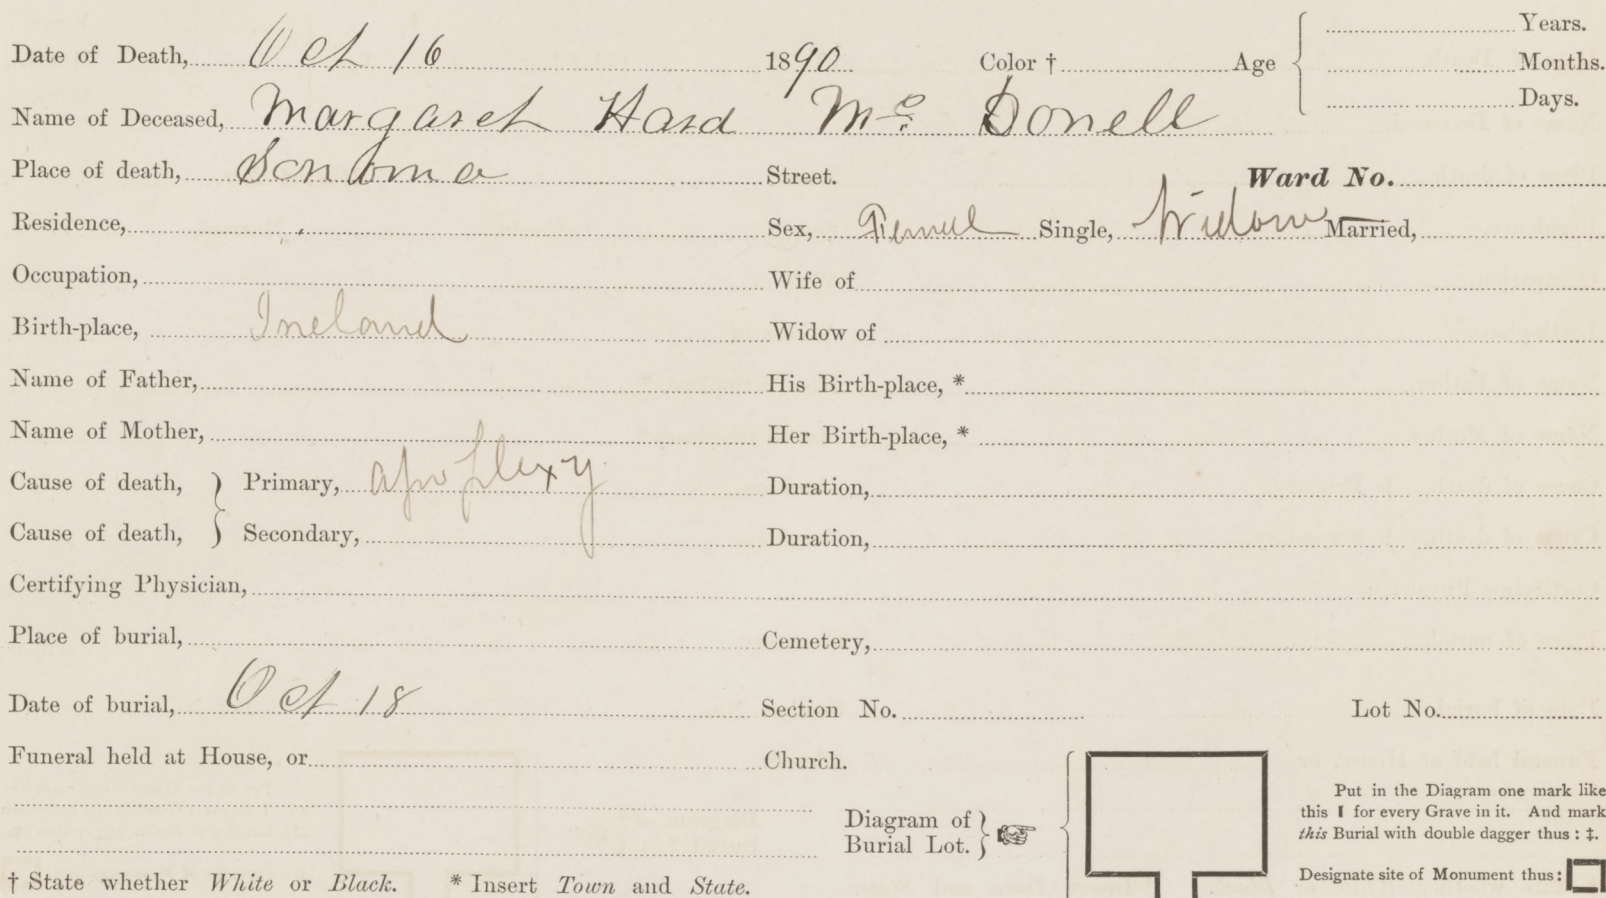 Years.
Date of Death, Oct 16 1890 Color † Age Months.
Days.
Name of Deceased, Margaret Hard Mc Donell
Place of death, Sonoma Street. Ward No.
Residence, Sex, Femul Single, Widow Married,
Occupation, Wife of
Birth-place, Ireland Widow of
Name of Father, His Birth-place, *
Name of Mother, Her Birth-place, *
Cause of death, } Primary, apoplexy Duration,
Cause of death, } Secondary, Duration,
Certifying Physician,
Place of burial, Cemetery,
Date of burial, Oct 18 Section No. Lot No.
Funeral held at House, or Church.
Diagram of
Burial Lot. }
Put in the Diagram one mark like
this I for every Grave in it. And mark
this Burial with double dagger thus : ‡.
Designate site of Monument thus :
† State whether White or Black. * Insert Town and State.